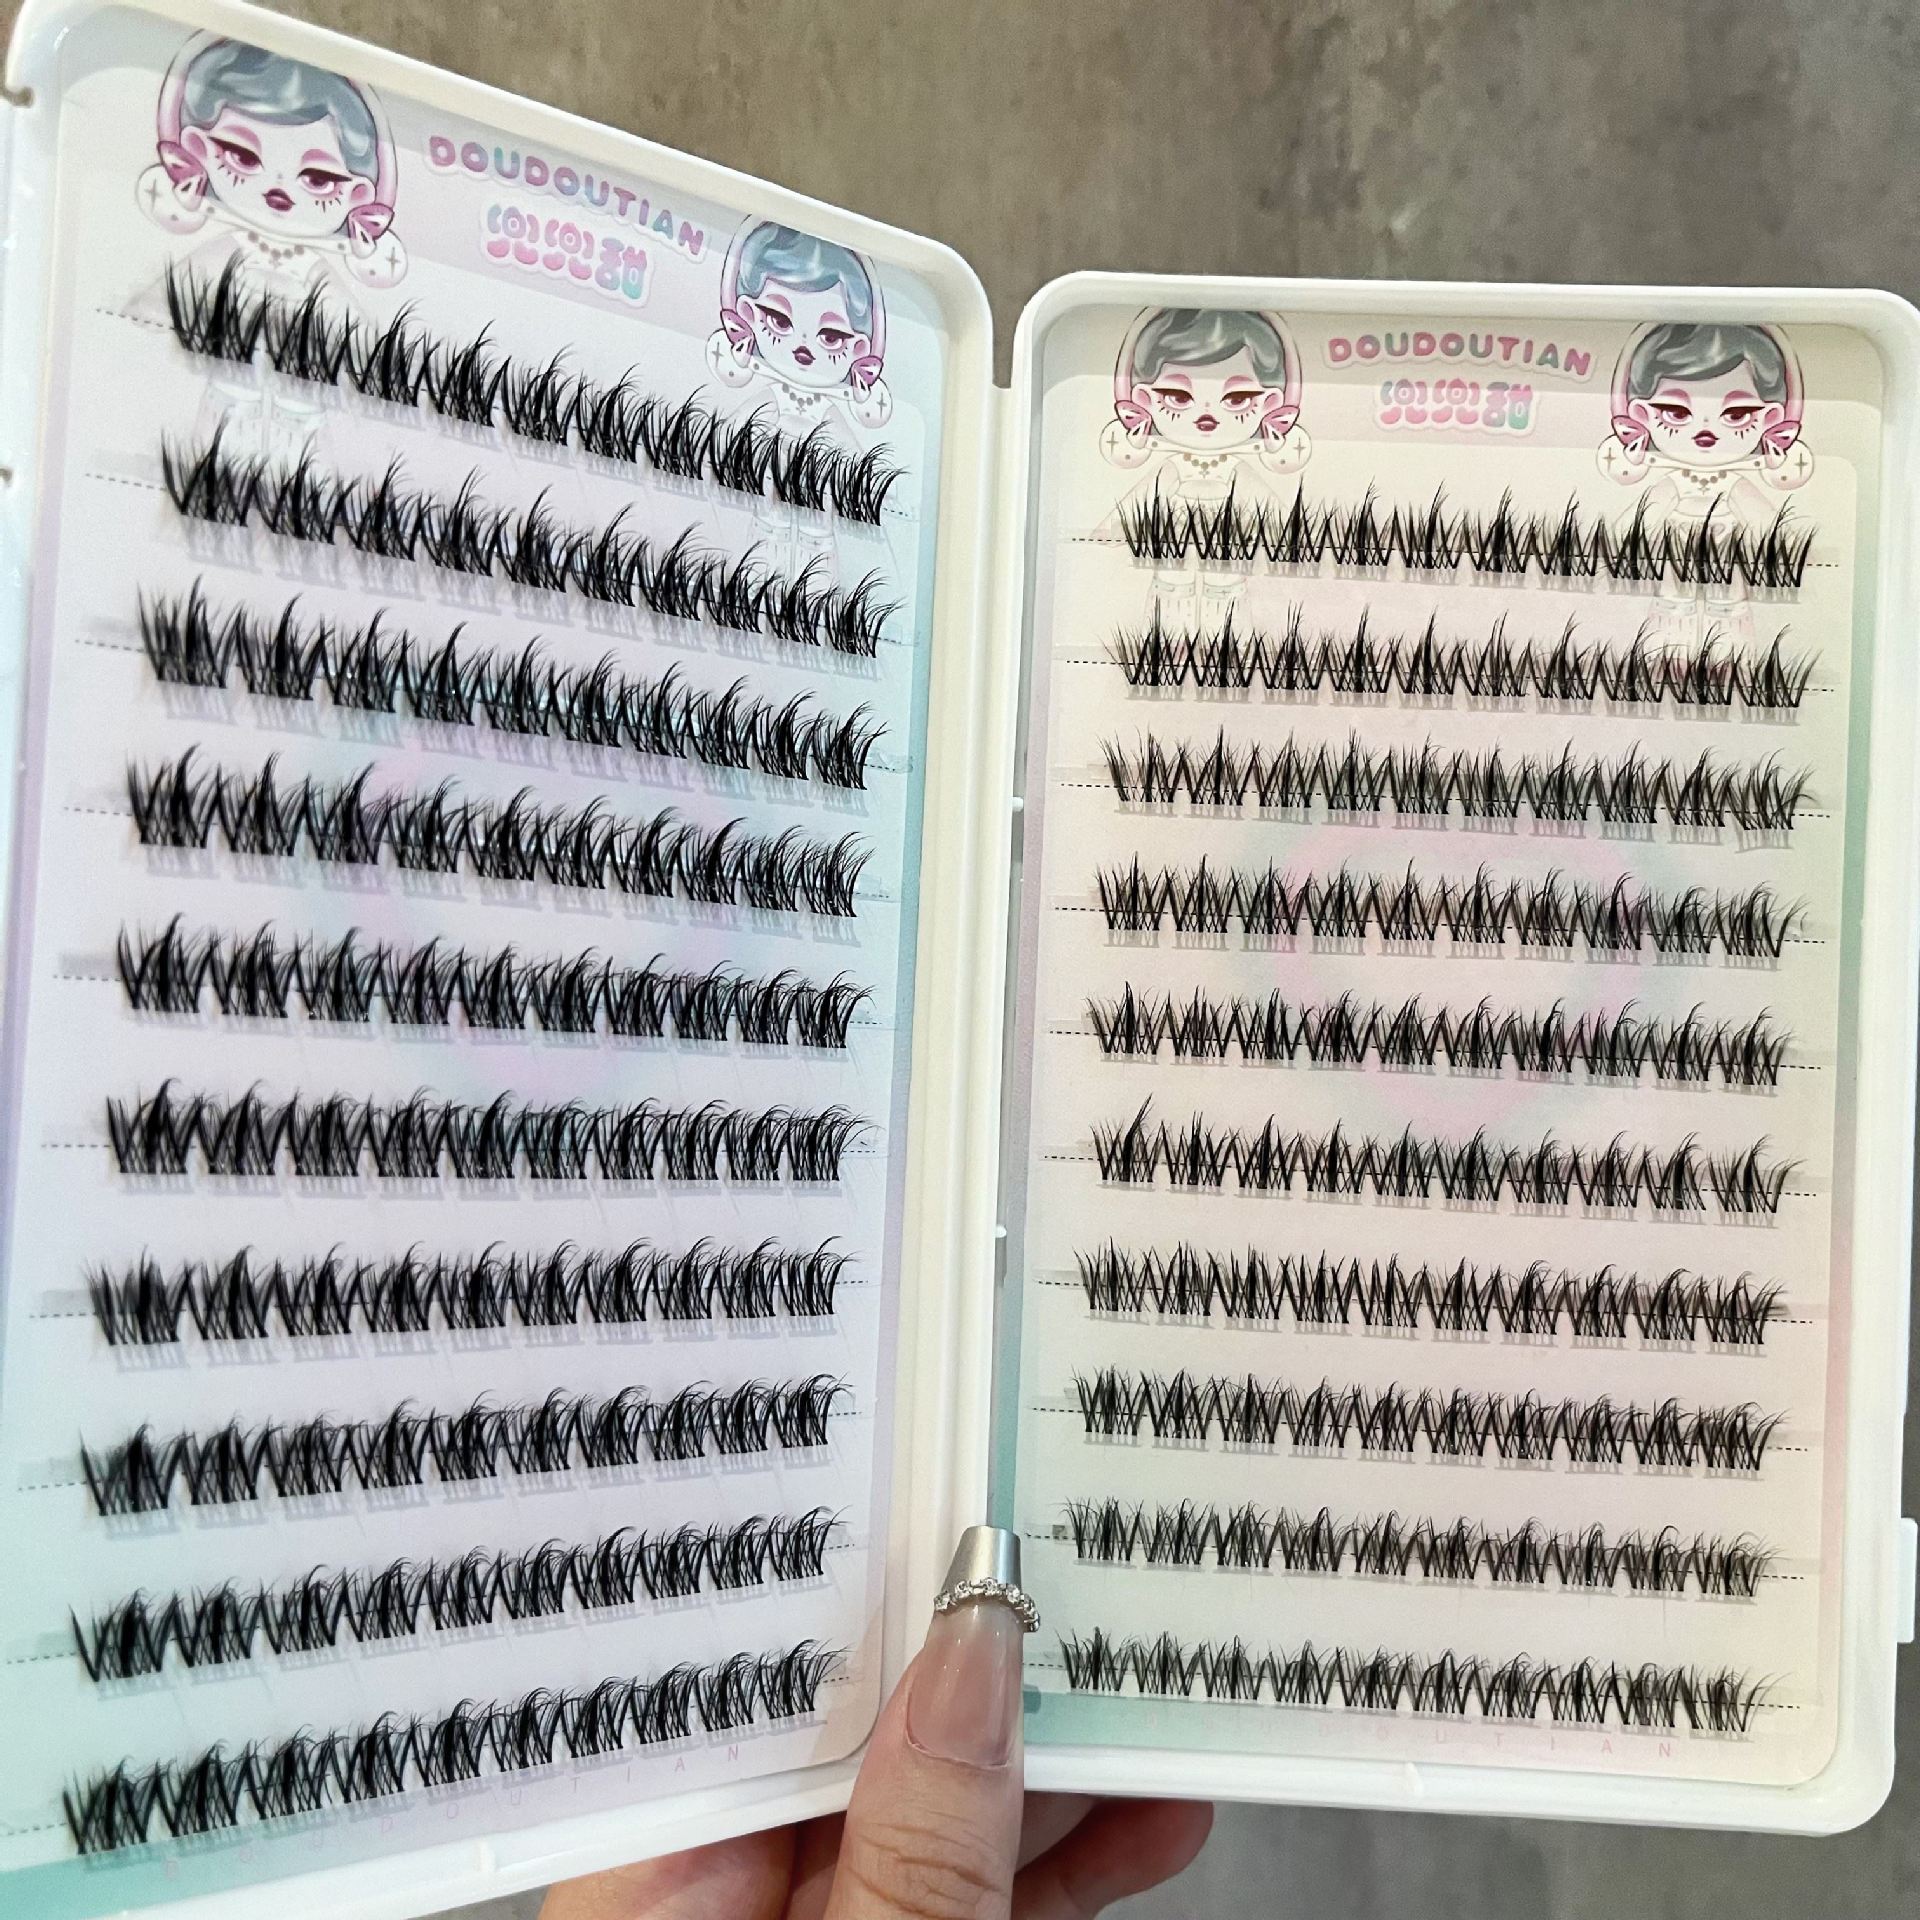 DOUDOUTIAN
兜兜甜
DOUDOUTIAN
兜兜甜
DOUDOUTIAN
DOUDOUTIAN